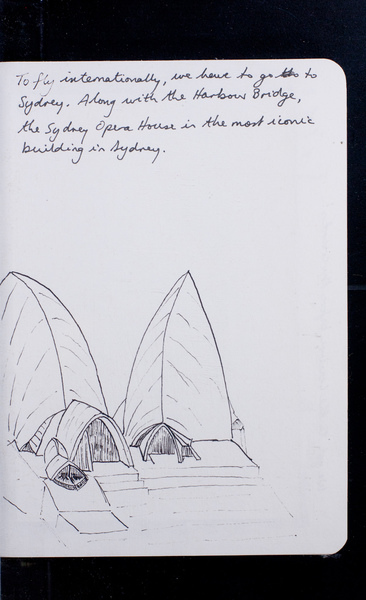 To fly internationally, we have to go to
Sydney. Along with the Harbour Bridge,
the Sydney Opera House is the most iconic
building in Sydney.